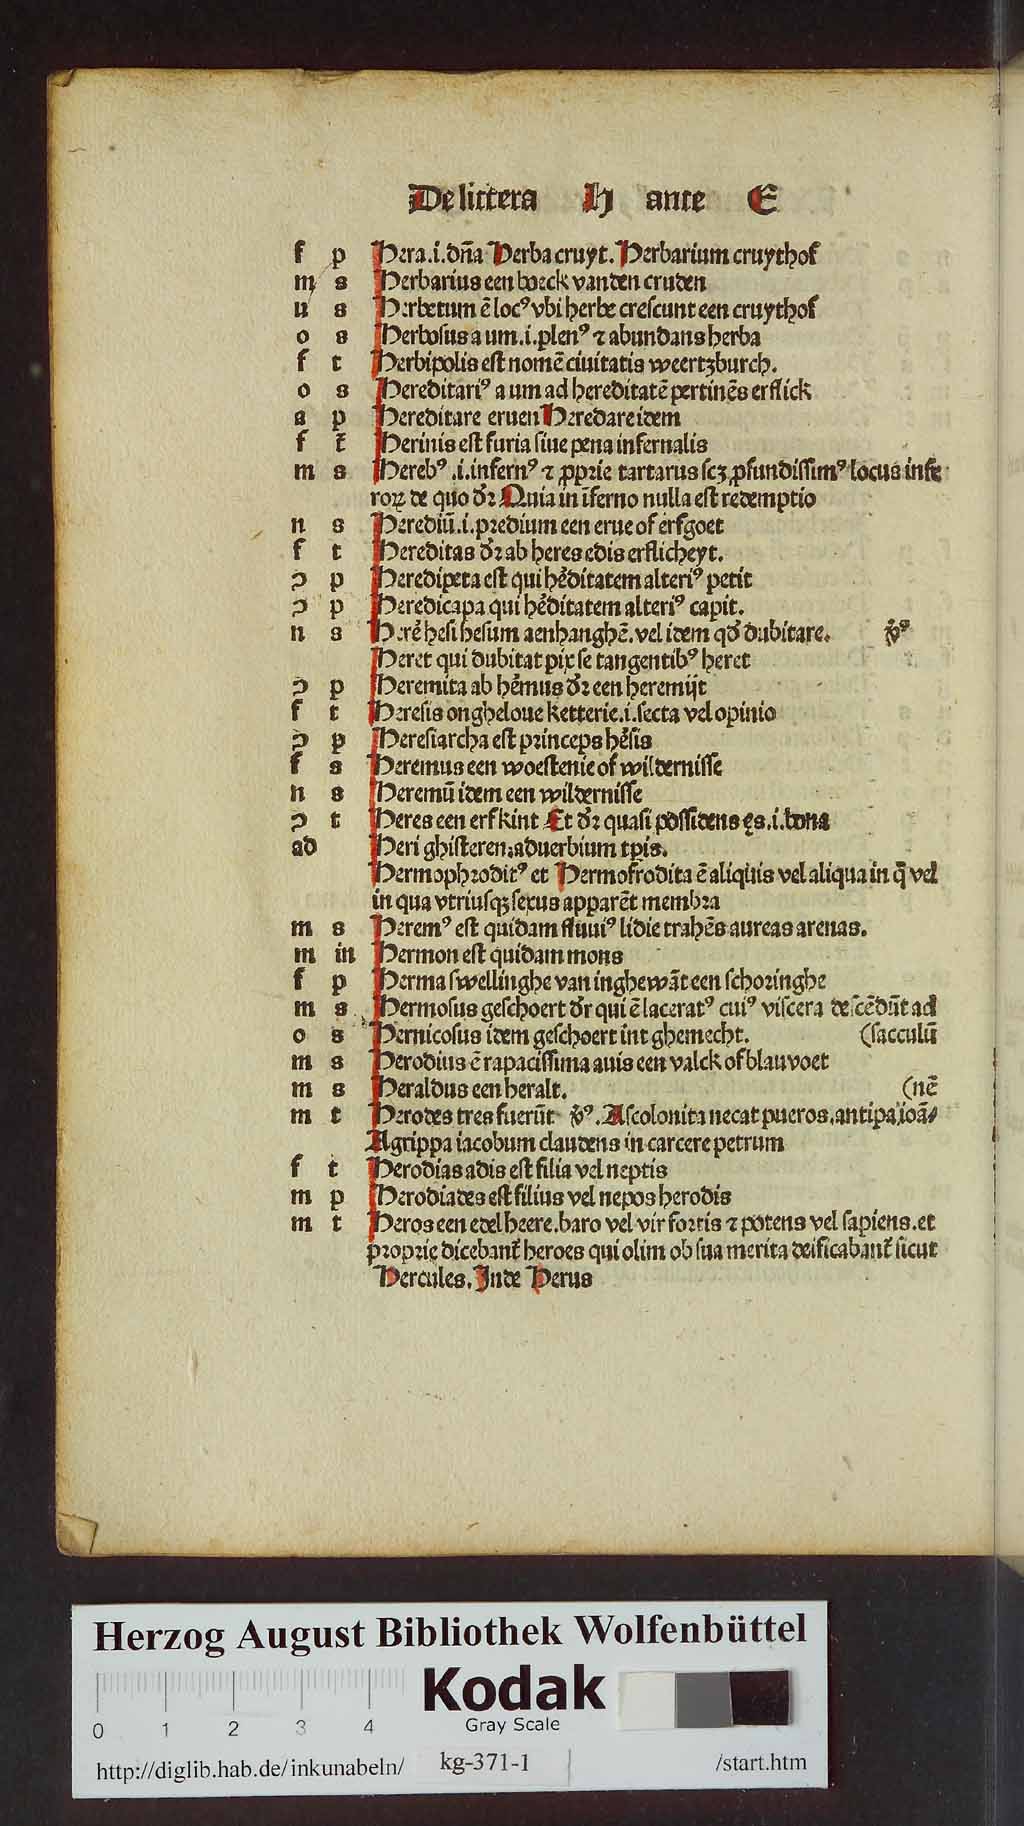 De littera H ante E
f p Hera.i.dn̄a Herba cruyt. Herbarium cruythof
m s Herbarius een boeck vanden cruden
u s Herbetum ē locꝰ vbi herbe crescunt een cruythof
o s Herbosus a um.i.plenꝰ ⁊ abundans herba
f t Herbipolis est nomē ciuitatis weertzburch.
o s Hereditariꝰ a um ad hereditatē pertinēs erflick
a p Hereditare eruen Heredare idem
f t̄ Herinis est furia siue pena infernalis
m s Herebꝰ .i.infernꝰ ⁊ ꝓprie tartarus scꝫ ꝓfundissimꝰ locus infe
roꝝ de quo dꝛ̄ Quia in īferno nulla est redemptio
n s Herediū.i.predium een erue of erfgoet
f t Hereditas dꝛ̄ ab heres edis erflicheyt.
ɔ p Heredipeta est qui he᷒ditatem alteriꝰ petit
ɔ p Heredicapa qui he᷒ditatem alteriꝰ capit.
n s Here᷒ hesi hesum aenhanghē.vel idem qd̄ dubitare. v̄ꝰ
Heret qui dubitat pix se tangentibꝰ heret
ɔ p Heremita ab he᷒mus dꝛ̄ een heremijt
f t Heresis ongheloue ketterie.i.secta vel opinio
ɔ p Heresiarcha est princeps he᷒sis
f s Heremus een woestenie of wildernisse
n s Heremū idem een wildernisse
ɔ t Heres een erfkint Et dꝛ̄ quasi possidens ęs.i.bona
ad Heri ghisteren.aduerbium tp̄is.
Hermophroditꝰ et Hermofrodita ē aliquis vel aliqua in q̄ vel
in qua vtriusqꝫ sexus apparēt membra
m s Heremꝰ est quidam fluuiꝰ lidie trahēs aureas arenas.
m in Hermon est quidam mons
f p Herma swellinghe van inghewāt een schoringhe
m s Hermosus geschoert dꝛ̄ qui ē laceratꝰ cuiꝰ viscera descēdūt ad
o s Hernicosus idem geschoert int ghemecht. (sacculū
m s Herodius ē rapacissima auis een valck of blauvoet
m s Heraldus een heralt. (nē
m t Herodes tres fuerūt v̄ꝰ. Ascolonita necat pueros.antipa ioā⸗
Agrippa iacobum claudens in carcere petrum
f t Herodias adis est filia vel neptis
m p Herodiades est filius vel nepos herodis
m t Heros een edel heere.baro vel vir fortis ⁊ potens vel sapiens.et
proprie dicebant᷒ heroes qui olim ob sua merita deificabant᷒ sicut
Hercules. Inde Herus
Herzog August Bibliothek Wolfenbüttel
Kodak
0 1 2 3 4 Gray Scale
http://diglib.hab.de/inkunabeln/ kg-371-1 /start.htm